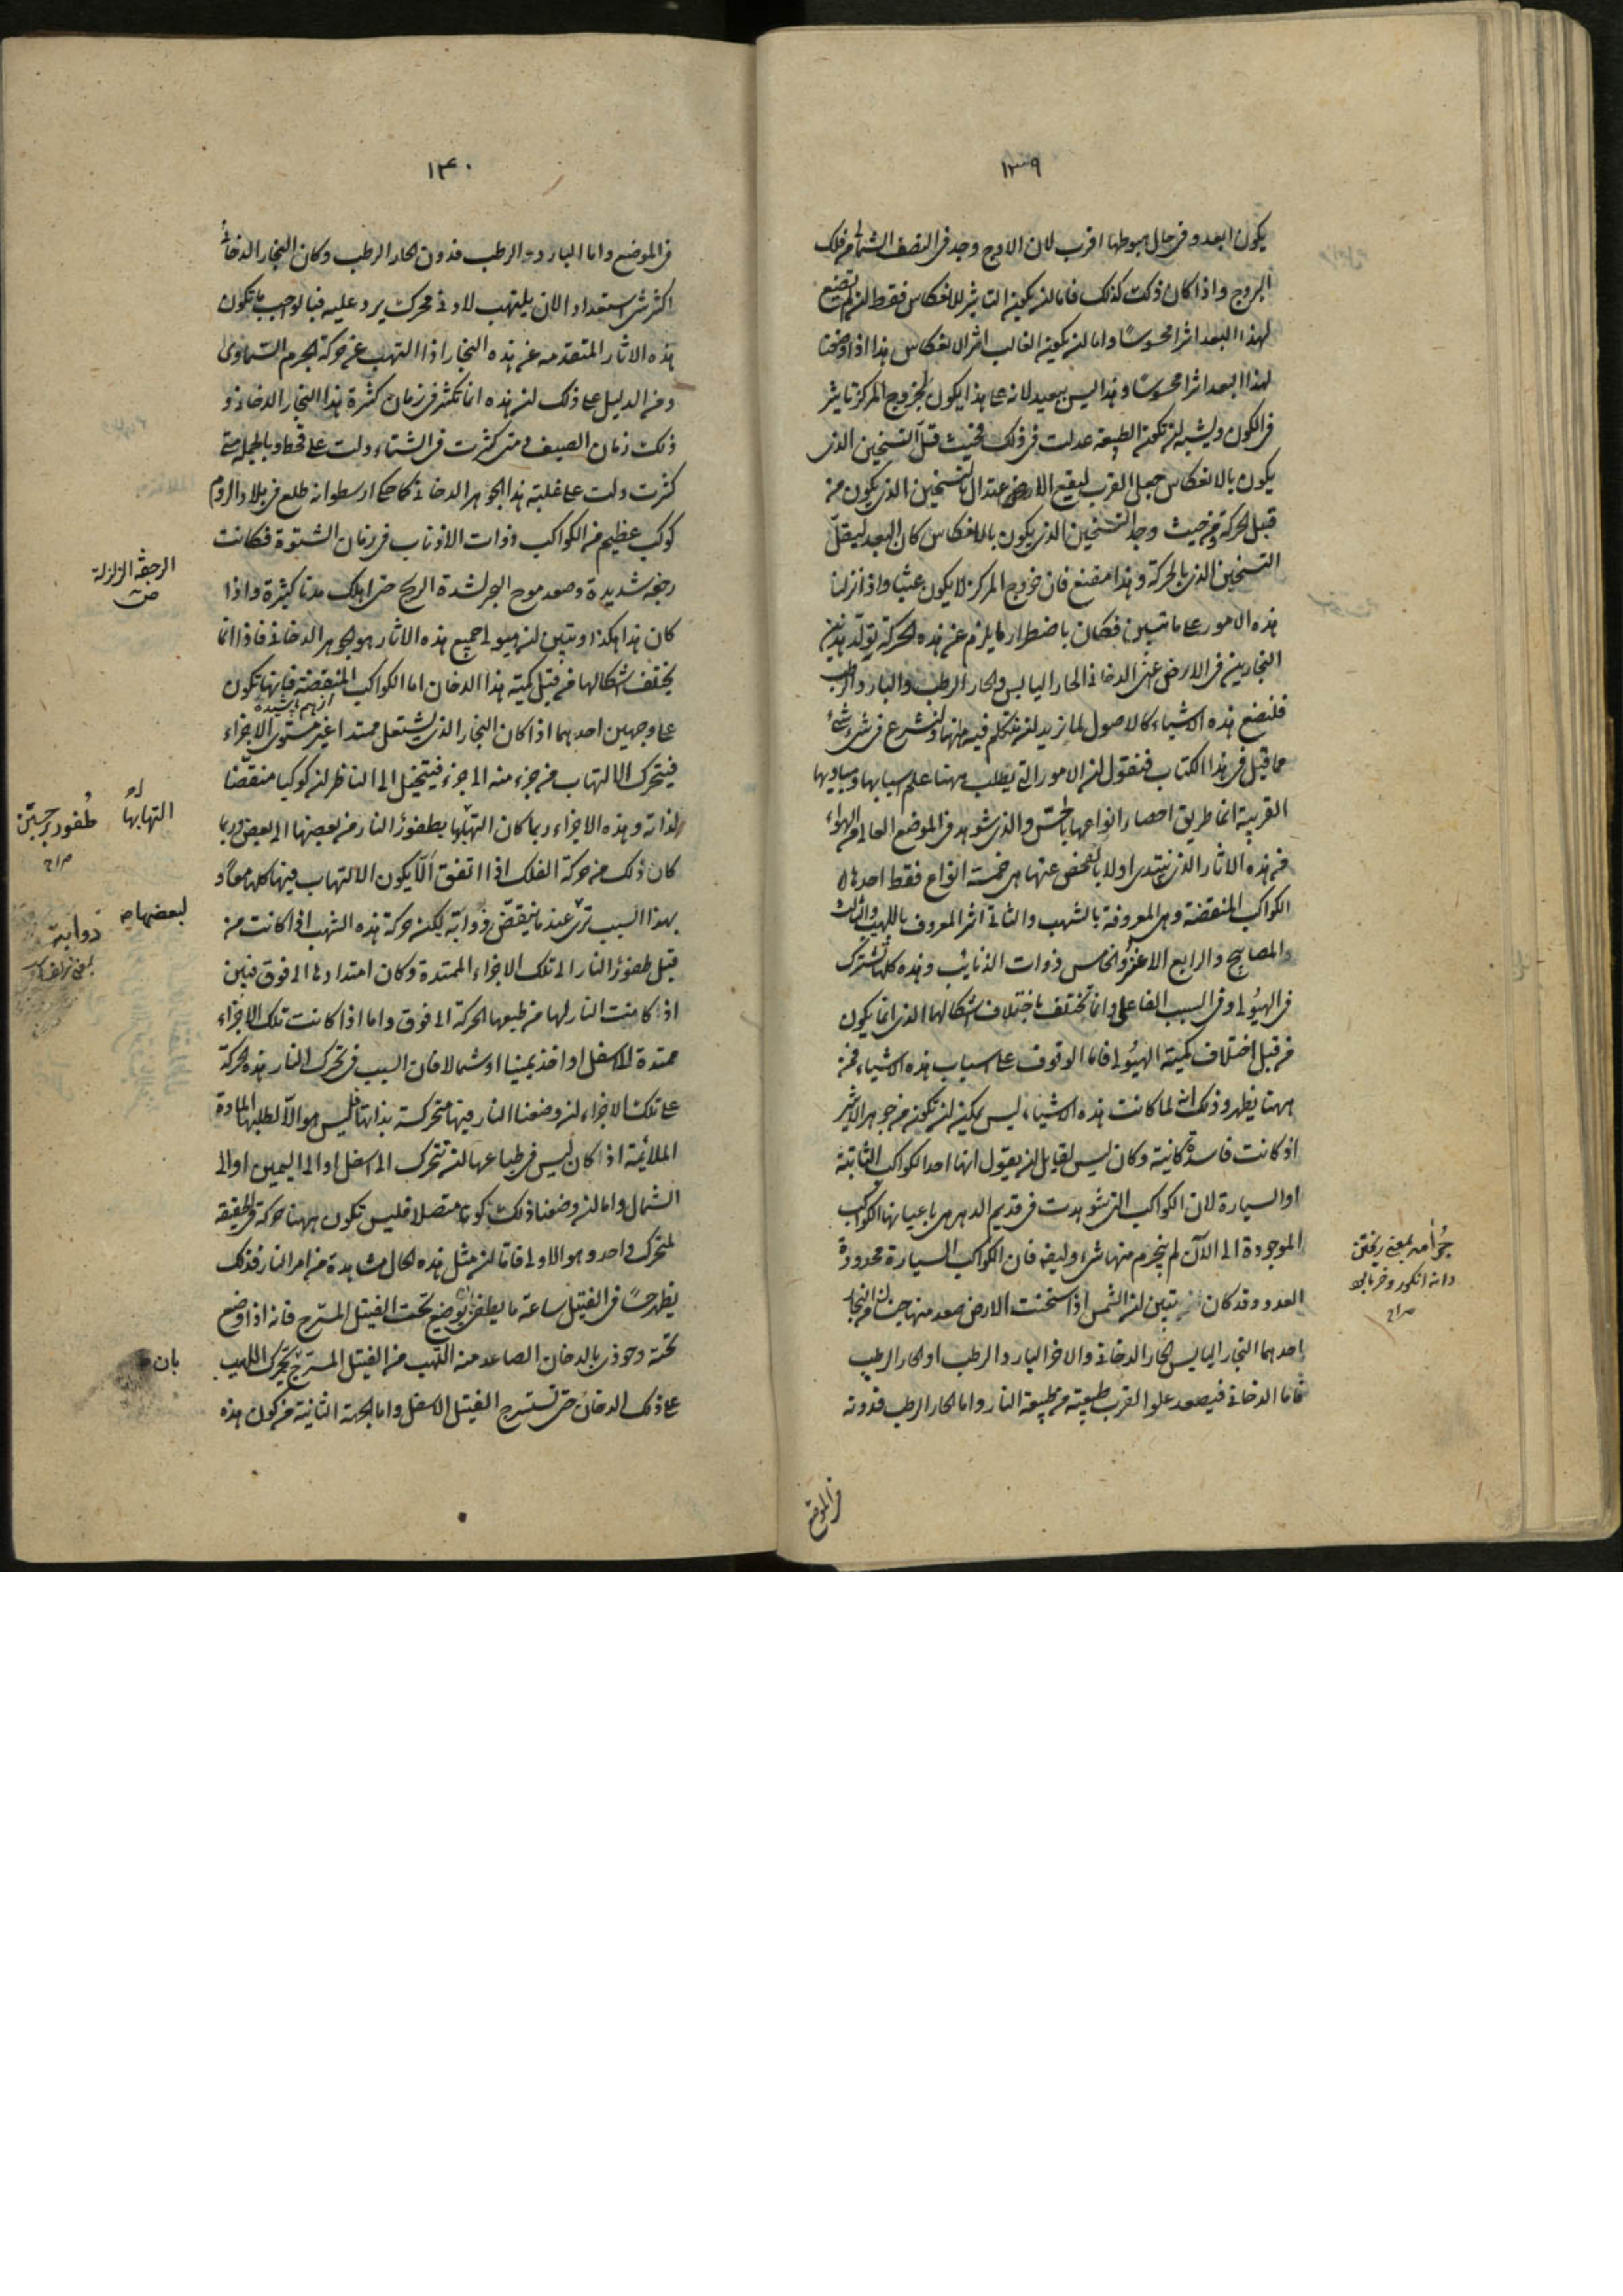 ١٣٩
يكون ابعد وفى حال هبوطها اقرب لان الاوج وجد فى النصف الشمالى من فلك
البروج واذا كان ذلك كذلك فاما ان يكون التاثير للانعكاس فقط ان لم نضع
لهذا البعد اثرا محسوسًا واما ان يكون الغالب اثر الانعكاس هذا اذا وضعنا
لهذا البعد اثرا محسوسًا وهذا ليس ببعيد لانه على هذا يكون لخروج المركز تاثير
فى الكون ويشبه ان تكون الطبيعة عدلت فى ذلك فحيث قلّ التسخين الذى
يكون بالانعكاس جعل القرب ليقع الاعتدال بالتسخين الذى يكون من
قبل الحركة ومن حيث وجد التسخين الذى يكون بالانعكاس كان البعد ليقلّ
التسخين الذى بالحركة وهذا مقنع فان خروج المركز لا يكون عبثا واذ انزلنا
هذه الامور على ما تبين فكان باضطرار ما يلزم عن هذه الحركة تولّد هذين
البخارين فى الارض اعنى الدخانى الحار اليابس والحار الرطب والبارد والرطب
فلنضع هذه الاشياء كالاصول لما نريد ان نتكلم فيه ههنا ولنشرع فى شئ شئ
مما قيل فى هذا الكتاب فنقول ان الامور التى يطلب ههنا علم اسبابها ومباديها
القريبة انما طريق احصار انواعها بالحسّ والذى شوهد فى الموضع العالى من الهواء
من هذه الاثار الذى نبتدى اولا بالفحص عنها هى خمسة انواع فقط احدها
الكواكب المنقضة وهى المعروفة بالشهب والثانى اثر المعروف باللهيب والثالث
والمصابيح والرابع الاعنز والخامس ذوات الذنايب وهذه كلها تشترك
فى الهيولى وفى السبب الفاعلى وانما تختلف باختلاف اشكالها الذى انما يكون
من قبل اختلاف كمية الهيولى فاما الوقوف على اسباب هذه الاشياء فمن
ههنا يظهر وذلك انه لما كانت هذه الاشياء ليس يمكن ان تكون من جوهر الاثير
اذ كانت فاسدة كائنة وكان ليس لقايل ان يقول انها احد الكواكب الثابتة
او السيارة لان الكواكب التى شوهدت فى قديم الدهر هى باعيانها الكواكب
الموجودة الى الآن لم ينخرم منها شئ وايضا فان الكواكب السيارة محدودة
العدد وقد كان تبين ان الشمس اذا سخنت الارض صعد منها جنسان من البخار
احدهما البخار اليابس الحار الدخانى والاخر البارد الرطب او الحار الرطب
فاما الدخانى فيصعد علوا لقرب طبيعته من طبيعة النار واما الحار الرطب فدونه
فى الموضع
دانه انكور وخرما
صراح
١٤٠
فى الموضع واما البارد والرطب فدون الحار الرطب وكان البخار الدخانى
اكثر شئ استعدادا لان يلتهب لادنى محرك يرد عليه فبالواجب ما تكون
هذه الاثار المتقدمة عن هذه البخار اذا التهب عن حركة الجرم السّماوى
ومن الدليل على ذلك ان هذه انما تكثر فى زمان كثرة هذا البخار الدخانى و
ذلك زمان الصيف ومتى كثرت فى الشتاء دلت على قحط وبالجملة متى
كثرت دلت على غلبة هذا الجوهر الدخانى كما حكى ارسطو انه طلع فى بلاد الروم
كوكب عظيم من الكواكب ذوات الاذناب فى زمان الشتوة فكانت
رجفة شديدة وصعد موج البحر لشدة الريح حتى اهلك مدنا كثيرة واذا
كان هذا هكذا وتبين ان هيولى جميع هذه الاثار هو الجوهر الدخانى فاذا انما
يختلف اشكالها من قبل كمية هذا الدخان اما الكواكب المنقضة فانها تكون
از هم پاشيده
على وجهين احدهما اذا كان البخار الذى يشتعل ممتدا غير مستوى الاجزاء
فيتحرك الالتهاب من جزء منه الى جزء فيتخيل الى الناظر ان كوكبا منقضّا
لذاته وهذه الاجزاء ربما كان التهابها بطفور النار من بعضها الى بعض وربما
كان ذلك من حركة الفلك اذا اتفق الّا يكون الالتهاب فيها كلها معًا و
بهذا السبب ترى عندما ينقضّ ذوابة يكن حركة هذه الشهب اذا كانت من
قبل طفور النار الى تلك الاجزاء الممتدة وكان امتدادها الى فوق فبيّن
اذ كانت النار لها من طبعها الحركة الى فوق واما اذا كانت تلك الاجزاء
ممتدة الى اسفل او اخذ يمينا او شمالا فان السبب فى تحرك النار هذه الحركة
على تلك الاجزاء ان وضعنا النار فيها متحركة بذاتها فليس هو الّا لطلبها المادة
الملائمة اذ كان ليس فى طباعها ان تتحرك الى اسفل او الى اليمين او الى
الشمال واما ان وضعنا ذلك تكونا متصلا فليس تكون ههنا حركة فى الحقيقة
لمتحرك واحد وهو الاولى فاما ان مثل هذه الحال مشاهدة من امر النار فذلك
يظهر حسًا فى الفتيل ساعة ما يطفى بوضع تحت الفتيل المسرّج فانه اذا وضع
تحته وحوذى بالدخان الصاعد منه اللهب من الفتيل المسرّج تحرك اللهيب
على ذلك الدخان حتى تسرج الفتيل الاسفل واما الجهة الثانية من كون هذه
الرجفة الزلزلة
ص
التهابها
طفور برجستن
صراح
لبعضها
ذوابة
بان